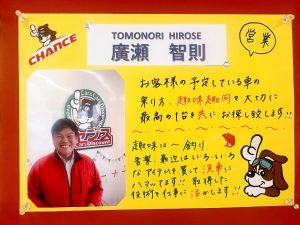 CHANCE
TOMONORI HIROSE
廣瀬 智則
営業
お客様の予定している車の
乗り方、趣味趣向を大切に
最高の1台を共にお探し致します!!
趣味は〜釣り
音楽、最近はいろいろ
なアイテムを買って洗車に
ハマってます!! 取得した
技術を仕事に活かします!!